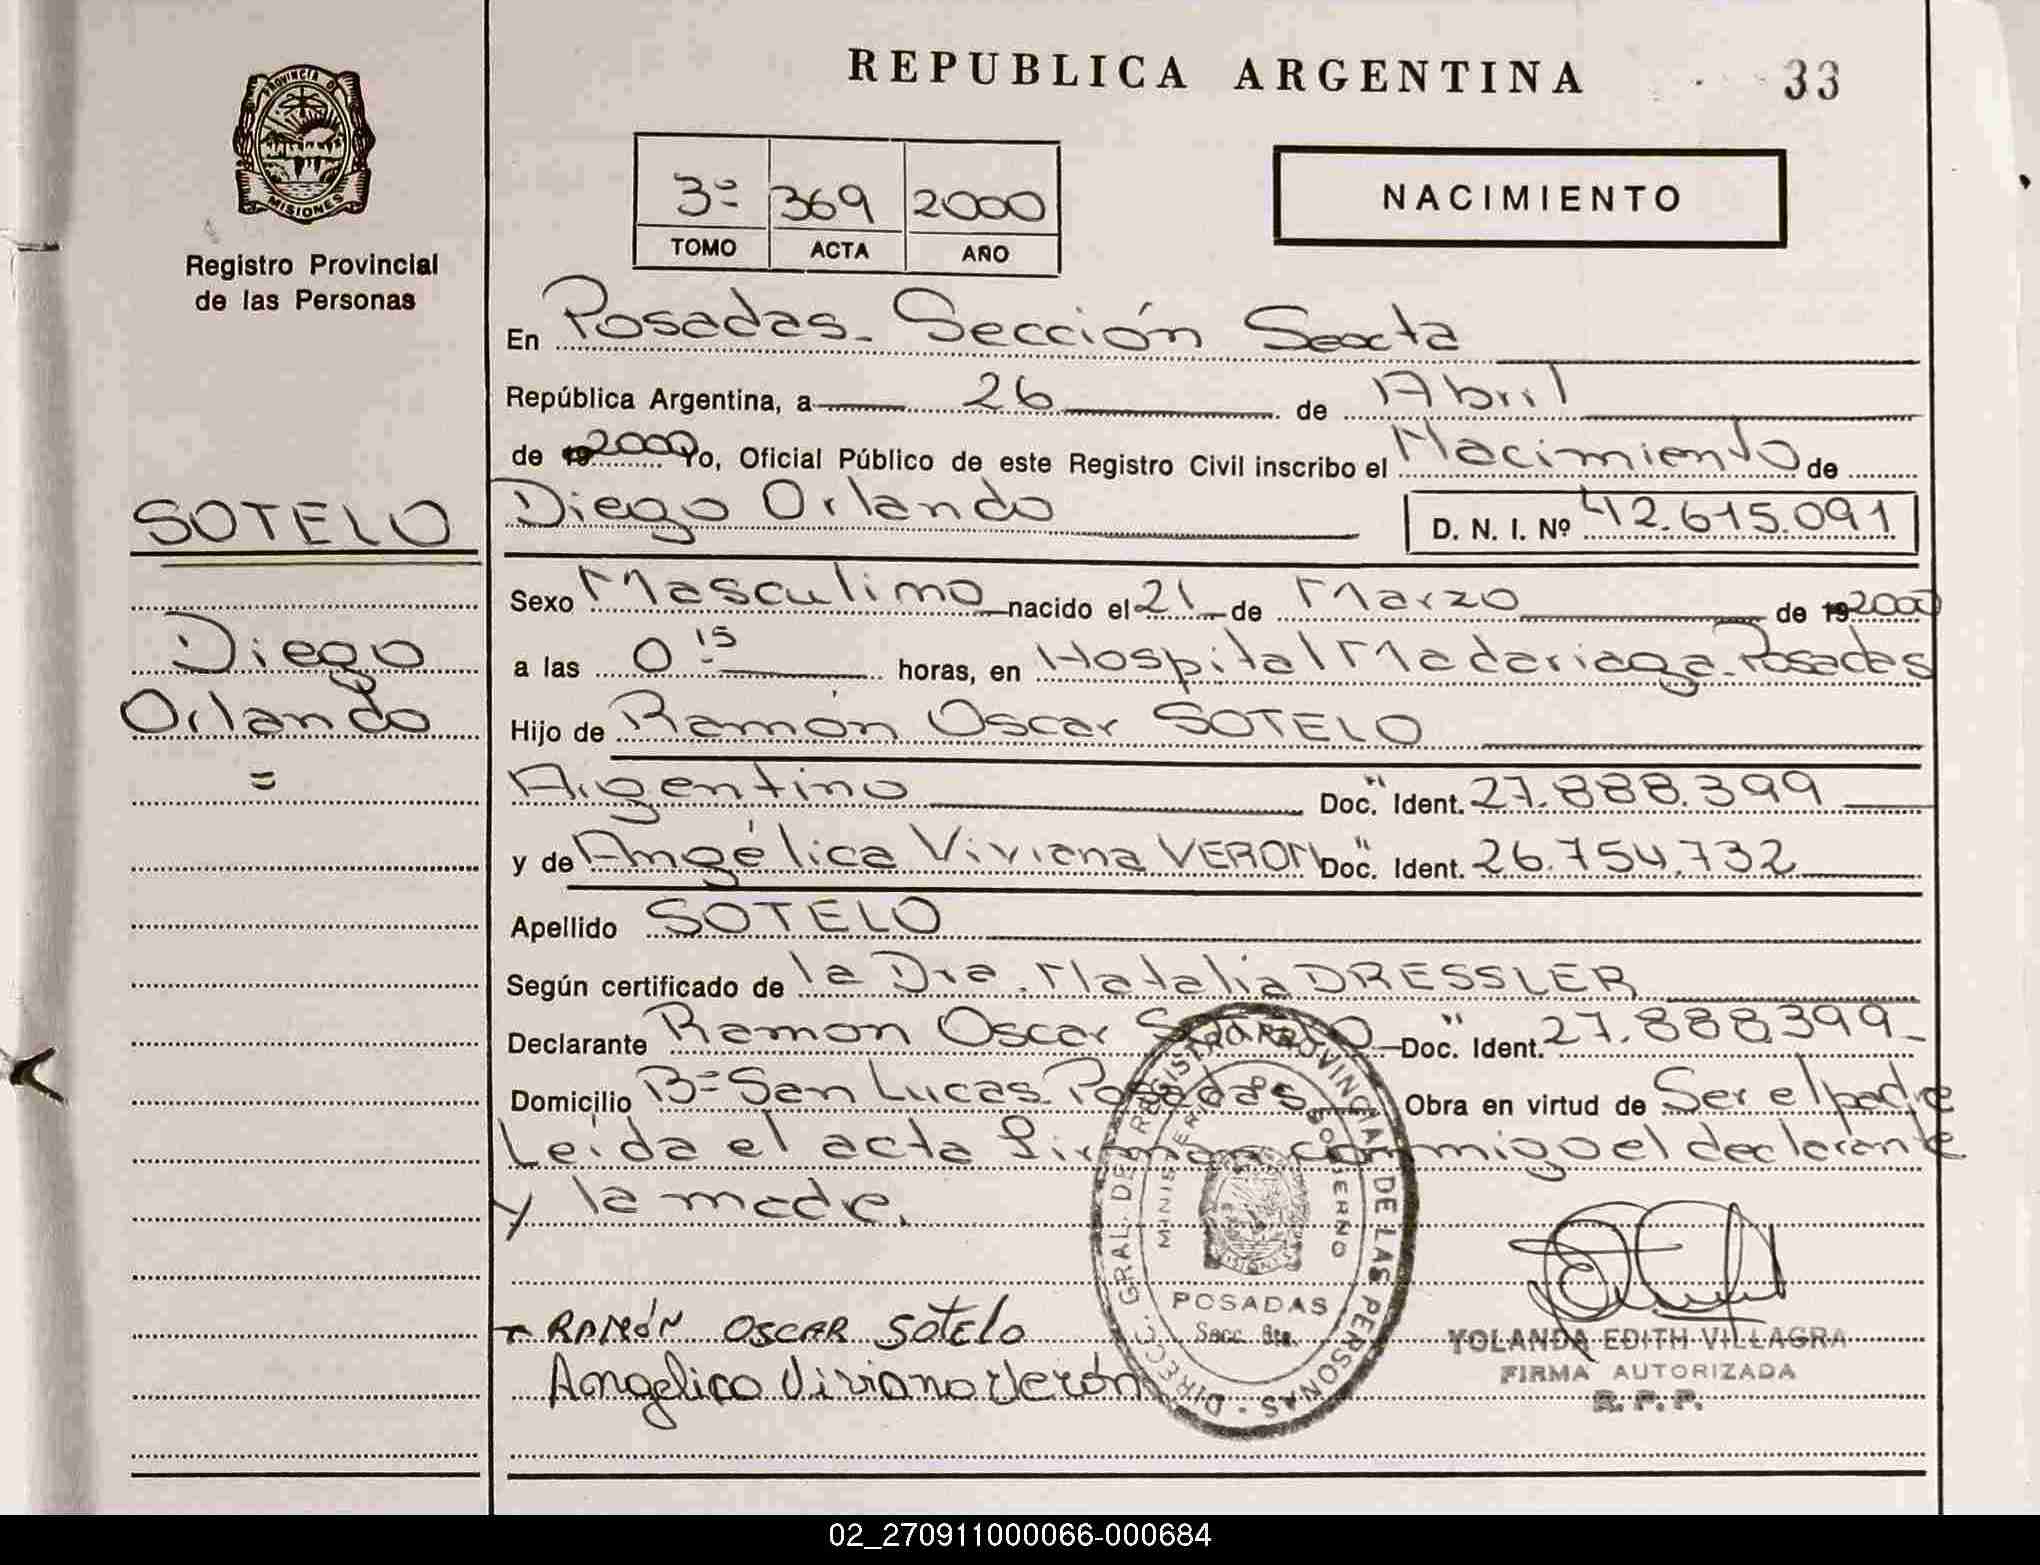 REPUBLICA ARGENTINA
33
PROVINCIA DE
MISIONES
Registro Provincial
de las Personas
3º 369 2000
TOMO ACTA AÑO
NACIMIENTO
En Posadas - Sección Sexta
República Argentina, a 26 de Abril
de 19 2000 Yo, Oficial Público de este Registro Civil inscribo el Nacimiento de
SOTELO
Diego
Orlando
=
Diego Orlando D. N. I. Nº 42.615.091
Sexo Masculino nacido el 21 de Marzo de 19 2000
a las 0 15 horas, en Hospital Madariaga - Posadas
Hijo de Ramón Oscar SOTELO
Argentino Doc. " Ident. 27.888.399
y de Angélica Viviana VERON Doc. " Ident. 26.754.732
Apellido SOTELO
Según certificado de la Dra. Natalia DRESSLER
Declarante Ramon Oscar SOTELO Doc. " Ident. 27.888.399
Domicilio Bº San Lucas - Posadas Obra en virtud de Ser el padre
Leída el acta firman conmigo el declarante
y la madre.
DIRECC. GRAL. DE REGISTRO PROVINCIAL DE LAS PERSONAS -
MINISTERIO GOBIERNO
MISIONES
POSADAS
Secc. 6ta.
RAMÓN OSCAR SOTELO
Angelica Viviana Verón
YOLANDA EDITH VILLAGRA
FIRMA AUTORIZADA
R. P. P.
02_270911000066-000684